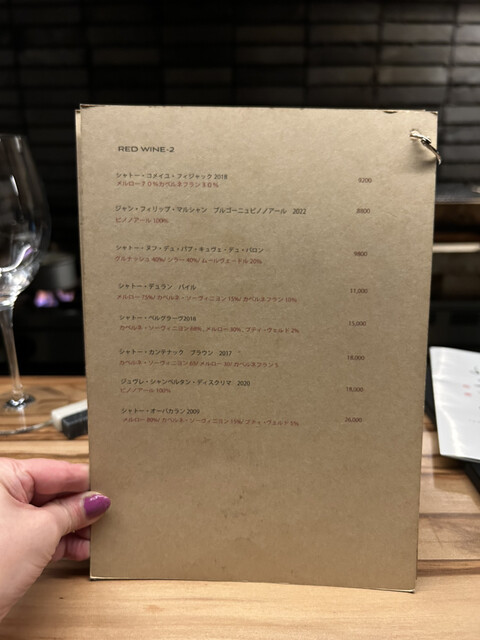 RED WINE-2
シャトー・コメイユ・フィジャック 2018 8200
メルロー70%カベルネフラン30%
ジャン・フィリップ・マルシャン ブルゴーニュピノノアール 2022 8800
ピノノアール 100%
シャトー・ヌフ・デュ・パプ・キュヴェ・デュ・バロン 9800
グルナッシュ 40%/ シラー 40%/ ムールヴェードル 20%
シャトー・デュラン バイル 11,000
メルロー 75%/ カベルネ・ソーヴィニヨン 15%/ カベルネフラン 10%
シャトー・ベルグラーヴ2016 15,000
カベルネ・ソーヴィニヨン 68% メルロー 30% プティ・ヴェルド 2%
シャトー・カンテナック ブラウン 2017 18,000
カベルネ・ソーヴィニヨン 65/ メルロー 30/ カベルネフラン 5
ジュヴレ・シャンベルタン・ディスクリマ 2020 18,000
ピノノアール 100%
シャトー・オーバカラン 2009
メルロー 80%/ カベルネ・ソーヴィニヨン 15%/ プティ・ヴェルド 5%